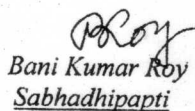 Roy
Bani Kumar Roy
Sabhadhipapti